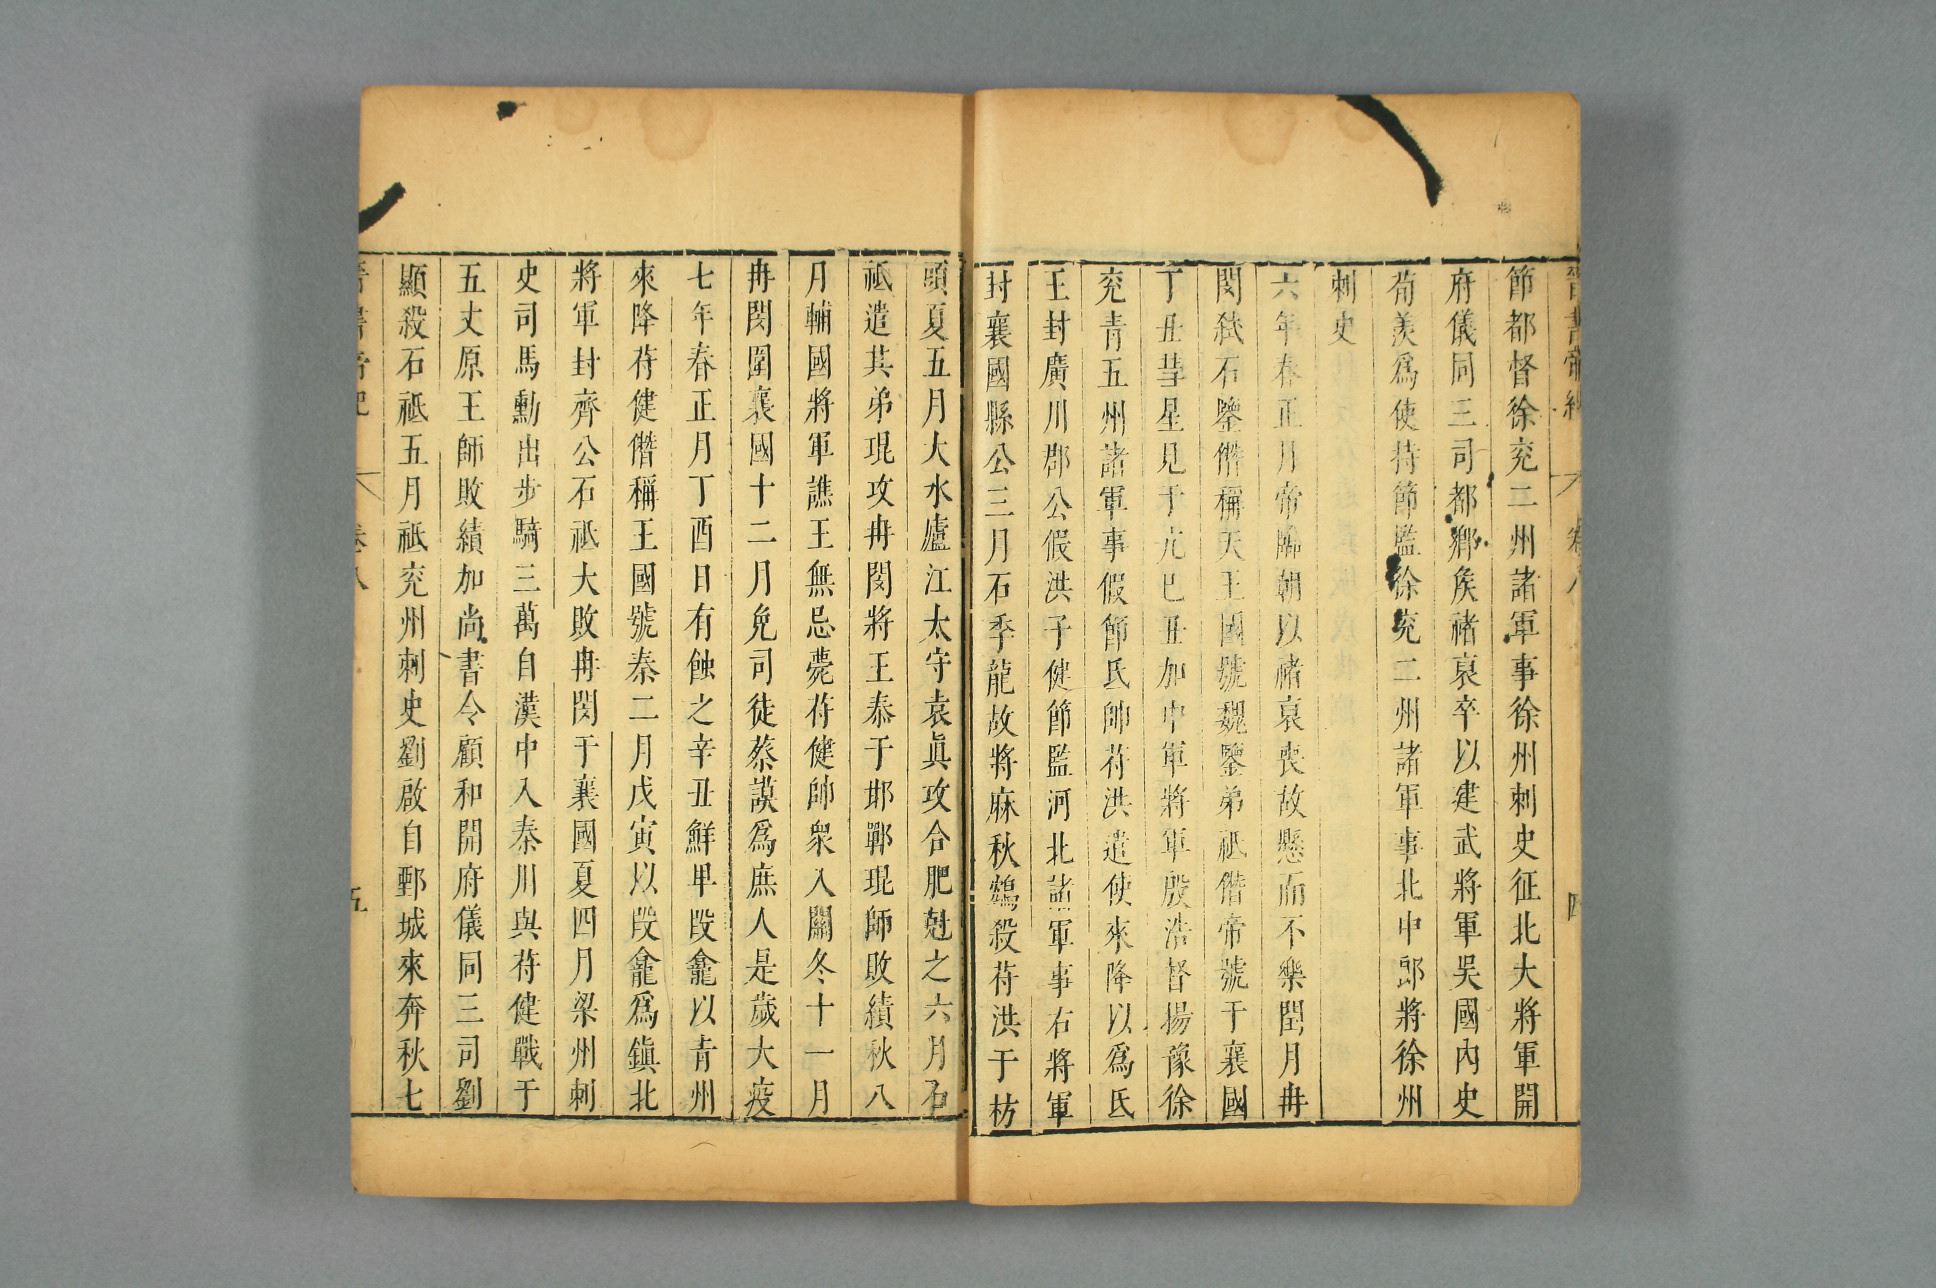 晉書帝紀 卷八 四
節都督徐兖二州諸軍事徐州刺史征北大將軍開
府儀同三司都鄉侯褚裒卒以建武將軍吳國內史
荀羨爲使持節監徐兖二州諸軍事北中郎將徐州
刺史
六年春正月帝臨朝以褚裒喪故懸而不樂閏月冉
閔弑石鑒僭稱天王國號魏鑒弟祗僭帝號于襄國
丁丑彗星見于亢巳丑加中軍將軍殷浩督揚豫徐
兖青五州諸軍事假節氐帥苻洪遣使來降以爲氐
王封廣川郡公假洪子健節監河北諸軍事右將軍
封襄國縣公三月石季龍故將麻秋鴆殺苻洪于枋
頭夏五月大水廬江太守袁眞攻合肥尅之六月石
祗遣其弟琨攻冉閔將王泰于邯鄲琨師敗績秋八
月輔國將軍譙王無忌薨苻健帥衆入關冬十一月
冉閔圍襄國十二月免司徒蔡謨爲庶人是歲大疫
七年春正月丁酉日有蝕之辛丑鮮卑段龕以青州
來降苻健僭稱王國號秦二月戊寅以段龕爲鎮北
將軍封齊公石祗大敗冉閔于襄國夏四月梁州刺
史司馬勳出步騎三萬自漢中入秦川與苻健戰于
五丈原王師敗績加尚書令顧和開府儀同三司劉
顯殺石祗五月祗兖州刺史劉啟自鄄城來奔秋七
晉書帝紀 卷八 五